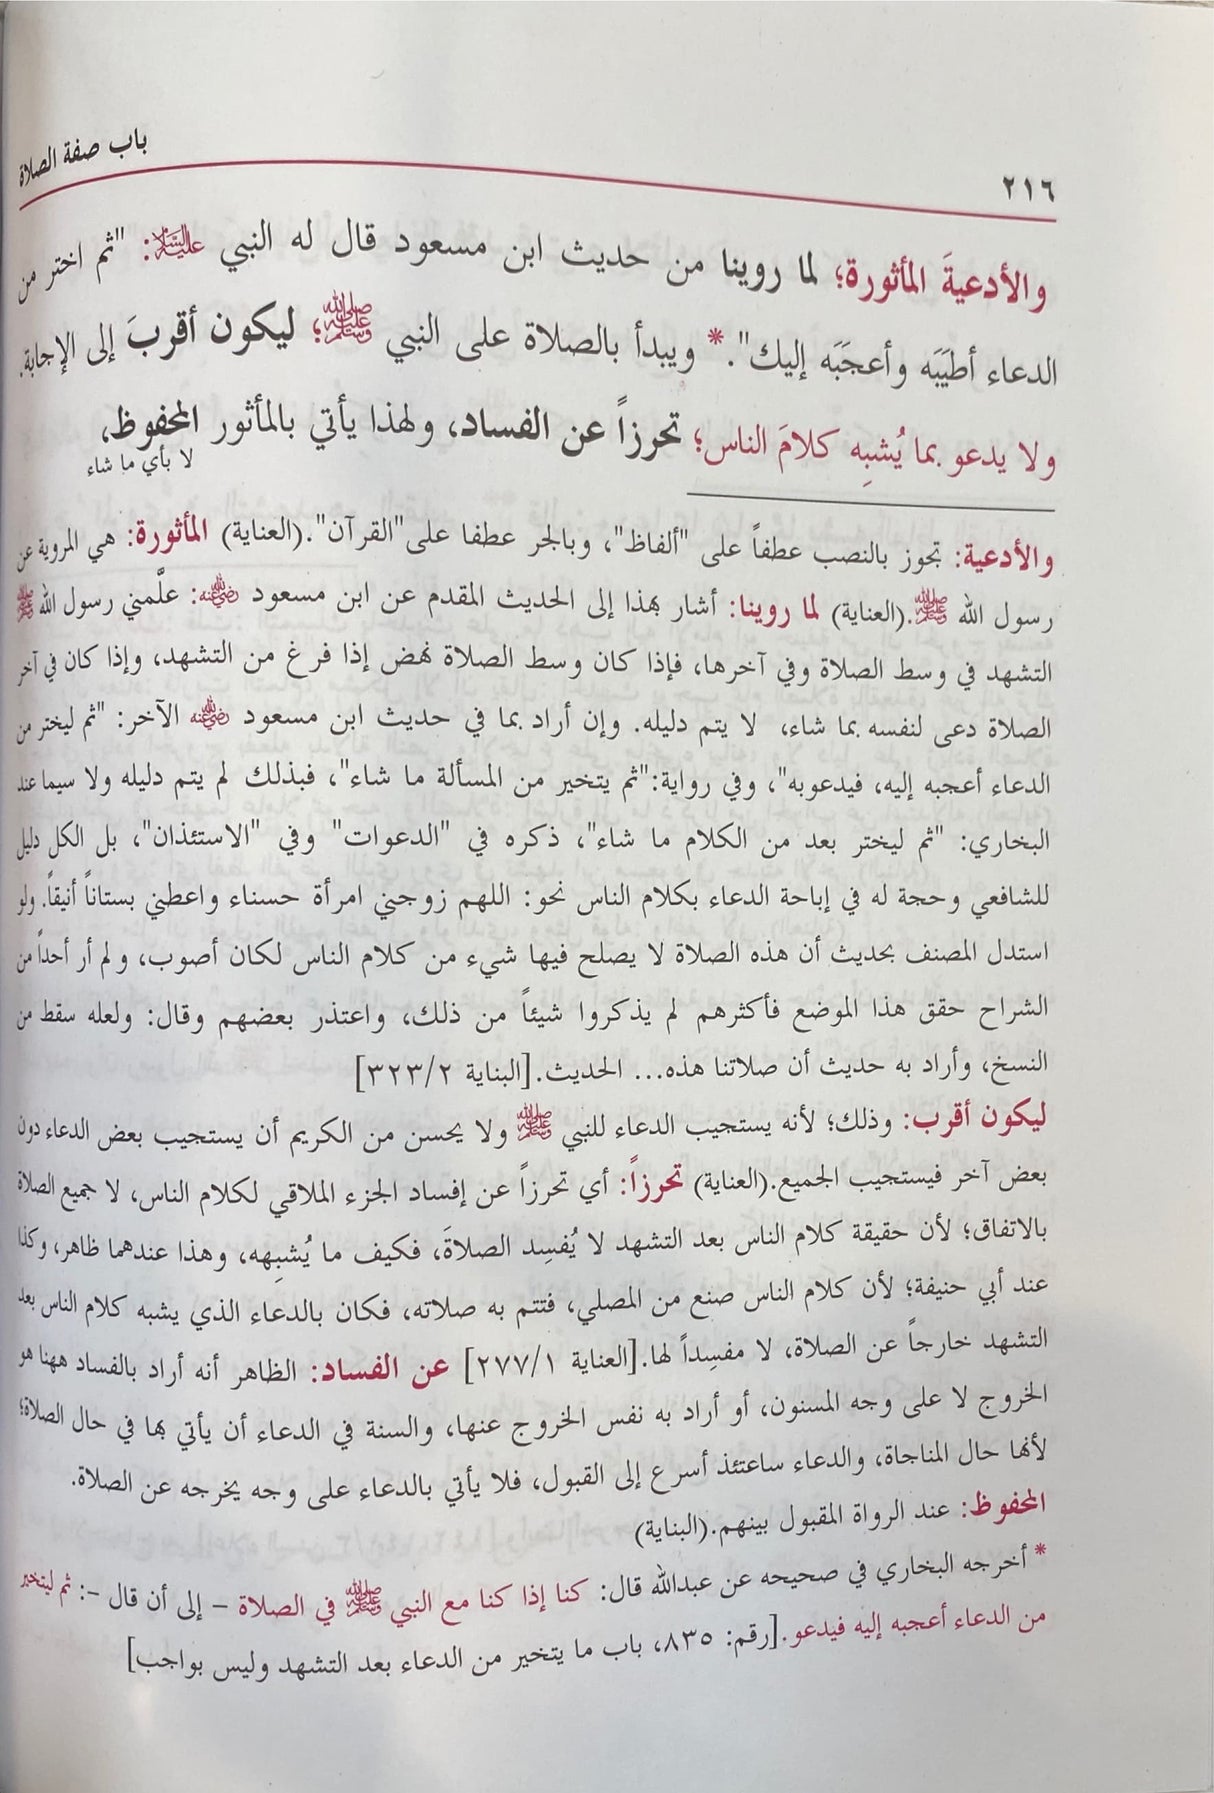 ٢١٦
باب صفة الصلاة
والأدعيةَ المأثورة؛ لما روينا من حديث ابن مسعود قال له النبي عليه السلام: "ثم اختر من
الدعاء أطيَبَه وأعجَبَه إليك".* ويبدأ بالصلاة على النبي ﷺ؛ ليكون أقربَ إلى الإجابة.
ولا يدعو بما يُشبِه كلامَ الناس؛ تحرزاً عن الفساد، ولهذا يأتي بالمأثور المحفوظ،
لا بأي ما شاء
والأدعية: تجوز بالنصب عطفاً على "ألفاظ"، وبالجر عطفا على"القرآن".(العناية) المأثورة: هي المروية عن
رسول الله ﷺ.(العناية) لما روينا: أشار بهذا إلى الحديث المقدم عن ابن مسعود رضي الله عنه: علَّمني رسول الله ﷺ
التشهد في وسط الصلاة وفي آخرها، فإذا كان وسط الصلاة نهض إذا فرغ من التشهد، وإذا كان في آخر
الصلاة دعى لنفسه بما شاء، لا يتم دليله. وإن أراد بما في حديث ابن مسعود رضي الله عنه الآخر: "ثم ليختر من
الدعاء أعجبه إليه، فيدعوبه"، وفي رواية:"ثم يتخير من المسألة ما شاء"، فبذلك لم يتم دليله ولا سيما عند
البخاري: "ثم ليختر بعد من الكلام ما شاء"، ذكره في "الدعوات" وفي "الاستئذان"، بل الكل دليل
للشافعي وحجة له في إباحة الدعاء بكلام الناس نحو: اللهم زوجني امرأة حسناء واعطني بستاناً أنيقاً. ولو
استدل المصنف بحديث أن هذه الصلاة لا يصلح فيها شيء من كلام الناس لكان أصوب، ولم أر أحداً من
الشراح حقق هذا الموضع فأكثرهم لم يذكروا شيئاً من ذلك، واعتذر بعضهم وقال: ولعله سقط من
النسخ، وأراد به حديث أن صلاتنا هذه... الحديث.[البناية ٣٢٣/٢]
ليكون أقرب: وذلك؛ لأنه يستجيب الدعاء للنبي ﷺ ولا يحسن من الكريم أن يستجيب بعض الدعاء دون
بعض آخر فيستجيب الجميع.(العناية) تحرزاً: أي تحرزاً عن إفساد الجزء الملاقي لكلام الناس، لا جميع الصلاة
بالاتفاق؛ لأن حقيقة كلام الناس بعد التشهد لا يُفسِد الصلاةَ، فكيف ما يُشبِهه، وهذا عندهما ظاهر، وكذا
عند أبي حنيفة؛ لأن كلام الناس صنع من المصلي، فتتم به صلاته، فكان بالدعاء الذي يشبه كلام الناس بعد
التشهد خارجاً عن الصلاة، لا مفسِداً لها.[العناية ٢٧٧/١] عن الفساد: الظاهر أنه أراد بالفساد ههنا هو
الخروج لا على وجه المسنون، أو أراد به نفس الخروج عنها، والسنة في الدعاء أن يأتي بها في حال الصلاة؛
لأنها حال المناجاة، والدعاء ساعتئذ أسرع إلى القبول، فلا يأتي بالدعاء على وجه يخرجه عن الصلاة.
المحفوظ: عند الرواة المقبول بينهم.(البناية)
* أخرجه البخاري في صحيحه عن عبدالله قال: كنا إذا كنا مع النبي ﷺ في الصلاة – إلى أن قال –: ثم ليتخير
من الدعاء أعجبه إليه فيدعو.[رقم: ٨٣٥، باب ما يتخير من الدعاء بعد التشهد وليس بواجب]